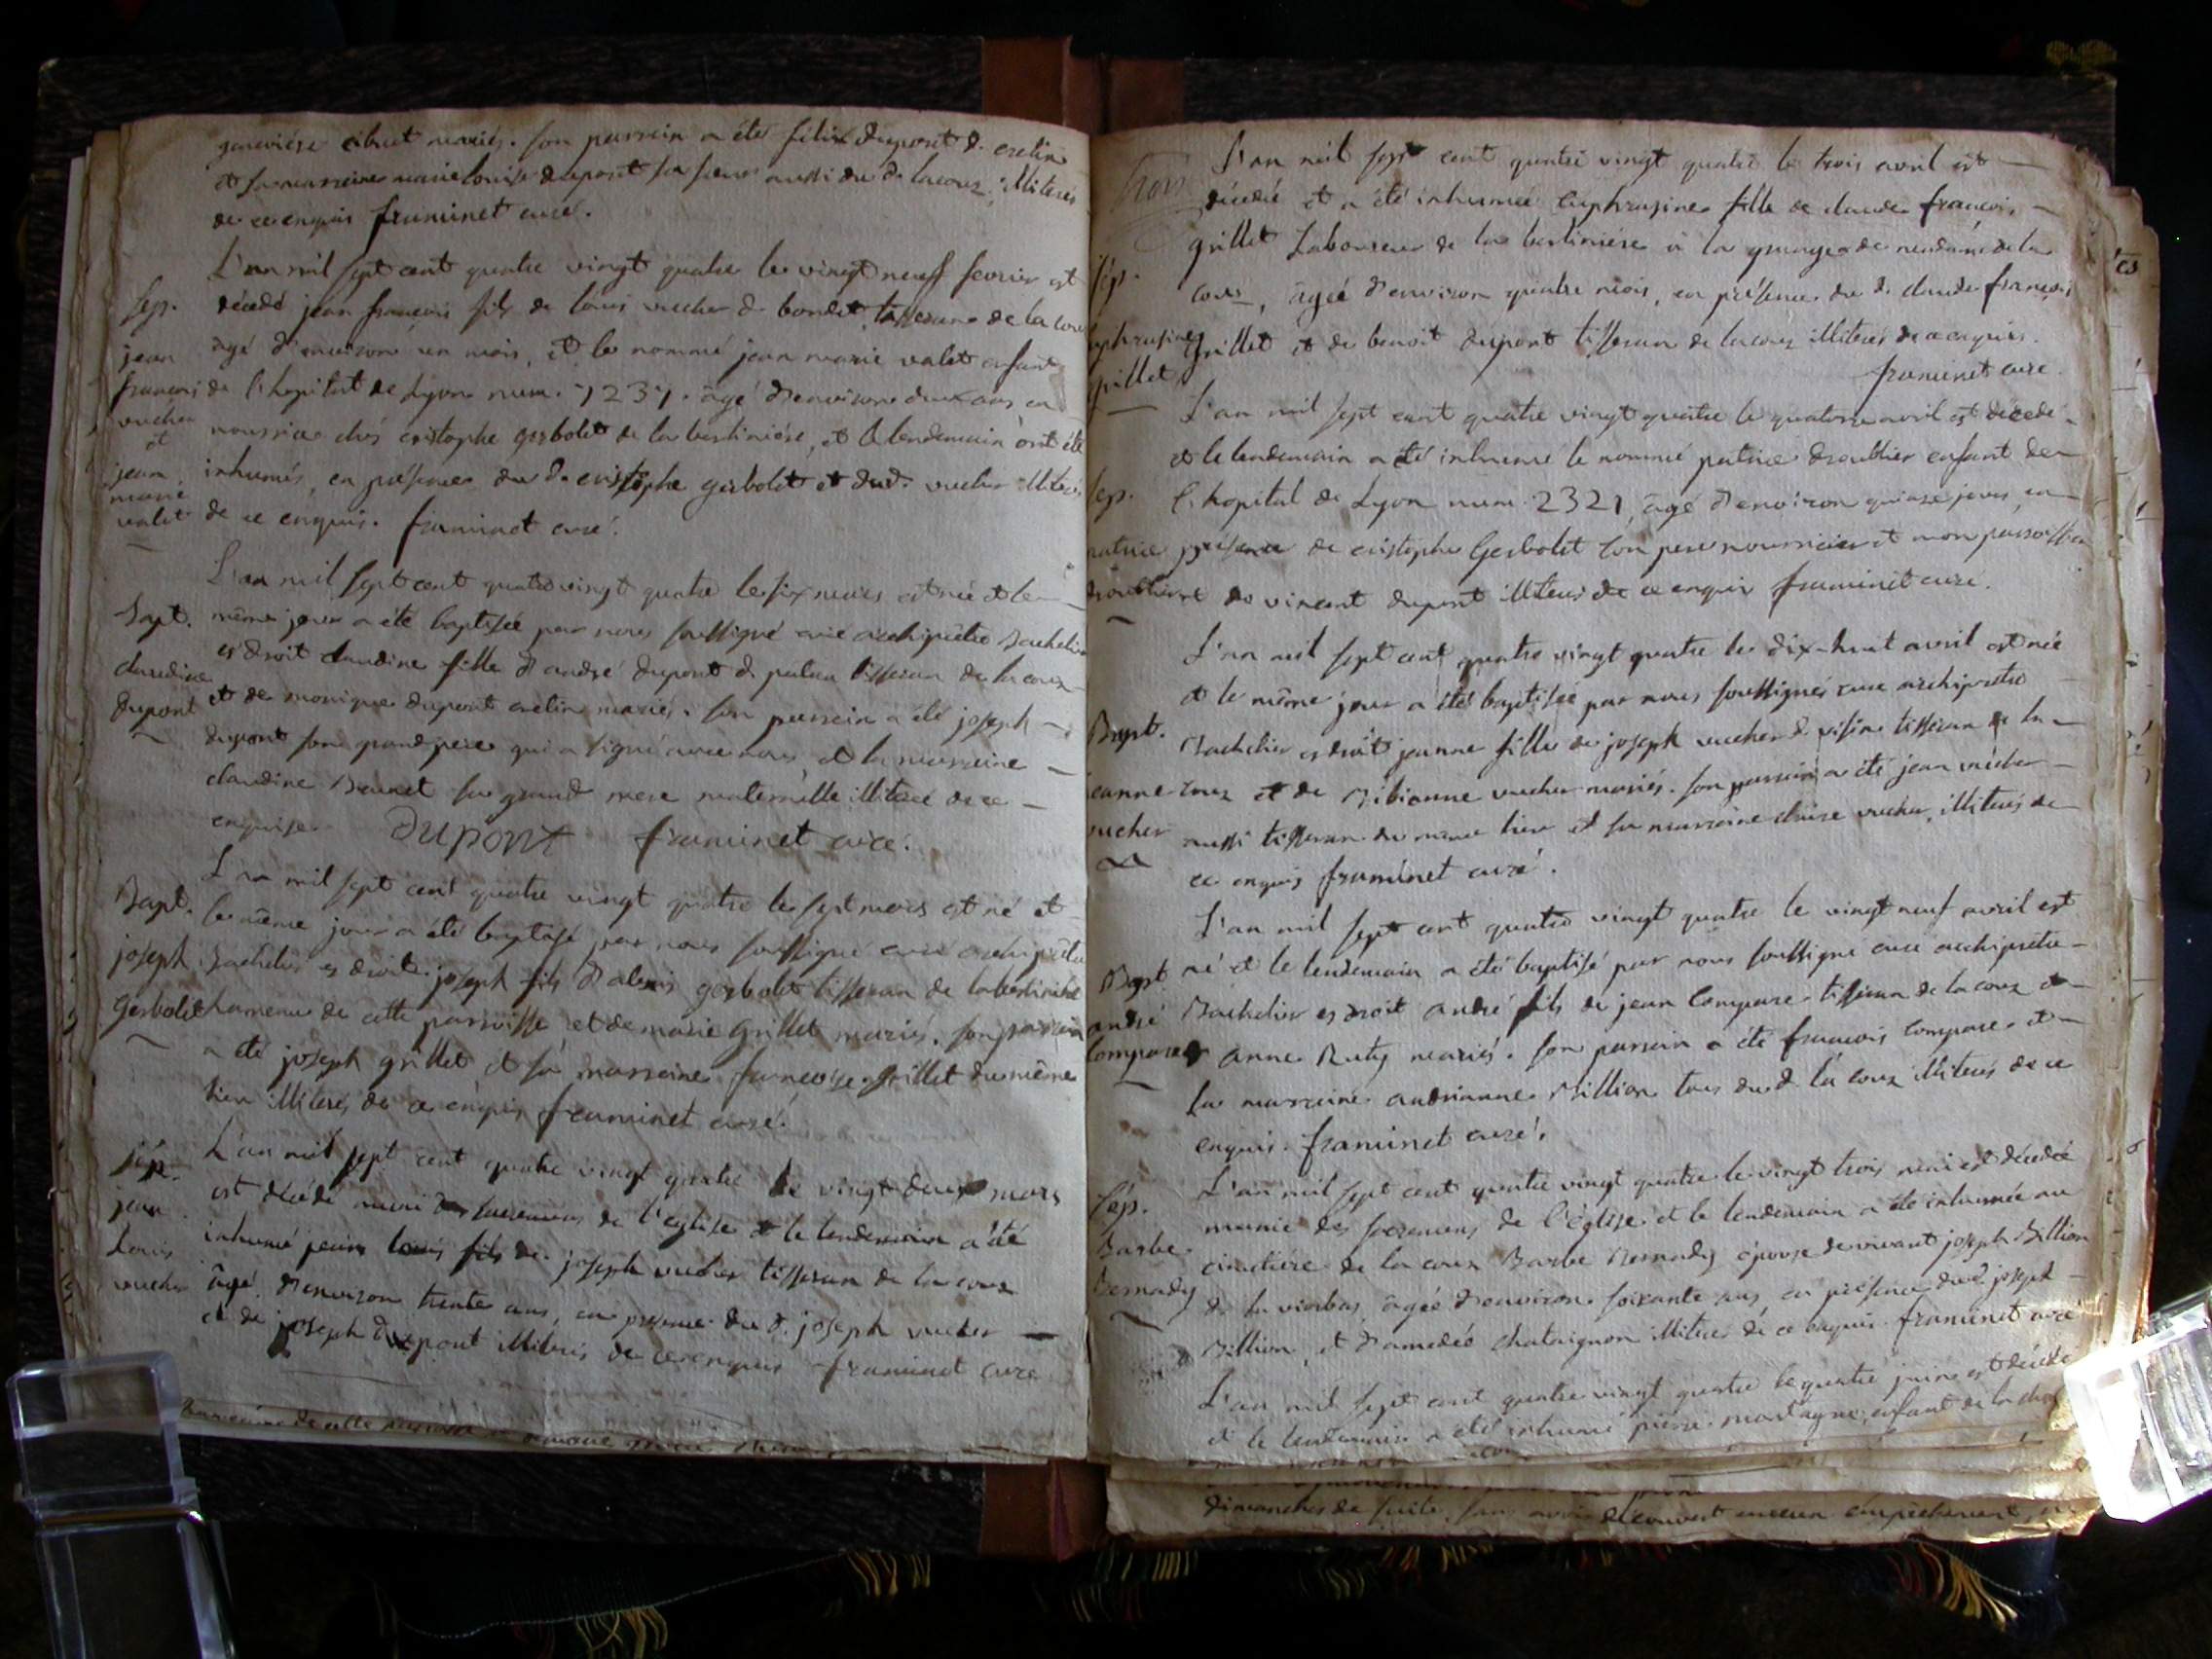 geneviéve ... mariés. son parrain a été félix dupont d. crelin
et sa marraine marie louise dupont sa soeur aussi du d. lacoux, illiterés
de ce enquis framinet curé.
L'an mil sept cent quatre vingt quatre le vingt neuf fevrier est
Sep. décédé jean françois fils de louis vucher d. bondet, tisseran de la coux
jean agé d'environ un mois, et le nommé jean marie valet enfant
francois de l'hopital de Lyon num. 7237. agé d'environ deux ans en
vucher nourrice chés cristophe gerbolet de la bertiniére, et le lendemain ont été
et
jean inhumés, en présence du d. cristophe gerbolet et dud. vucher illiterés
marie
valet de ce enquis. framinet curé.
L'an mil sept cent quatre vingt quatre le six mars est née et le
Bapt. même jour a été baptisée par nous soussigné curé archiprêtre Bachelier
claudine es droit claudine fille d'andré dupont d. patra tisseran de lacoux
dupont et de monique dupont crelin mariés. son parrain a été joseph
dupont son grand pere qui a signé avec nous et la marraine
claudine Brunet sa grand mere maternelle illiterée de ce
enquise. Dupont framinet curé.
L'an mil sept cent quatre vingt quatre le sept mars est né et
Bapt. le même jour a été baptisé par nous soussigné curé archiprêtre
joseph Bachelier es droit joseph fils d'alexis gerbolet tisseran de labertiniére
Gerbolet hameau de cette parroisse et de marie Grillet mariés. son parrain
a été joseph grillet et sa marraine francoise grillet du même
lieu illiterés de ce enquis framinet curé.
Sép. L'an mil sept cent quatre vingt quatre le vingt deux mars
jean est décédé muni des sacremens de l'eglise et le lendemain a été
Louis inhumé jean louis fils de joseph vucher tisseran de la coux
vucher âgé d'environ trente ans, en présence du d. joseph vucher
et de joseph dupont illiterés de ce enquis framinet curé
de cette parroisse
L'an mil sept cent quatre vingt quatre le trois avril est
décédée et a été inhumée Euphrasine fille de claude françois
grillet Laboureur de la bertiniére à la grange de madame de la
Sép. coux, âgée d'environ quatre mois, en présence du d. claude françois
euphrasine grillet et de benoit dupont tisseran de lacoux illiterés de ce enquis.
grillet framinet curé.
L'an mil sept cent quatre vingt quatre le quatorze avril est décedé
et le lendemain a été inhumé le nommé patrice droublier enfant de
Sep. l'hopital de Lyon num. 2321, agé d'environ quinze jours, en
patrice présence de cristophe Gerbolet son pere nourricier et mon parroissien
et de vincent dupont illiterés de ce enquis framinet curé.
L'an mil sept cent quatre vingt quatre le dix-huit avril est née
et le même jour a été baptisée par nous soussignés curé archiprêtre
Bapt. Bachelier es droit jeanne fille de joseph vucher d. visin tisseran de la
jeanne coux et de Bibianne vucher mariés. son parrain a été jean vucher
vucher aussi tisseran du même lieu et sa marraine claire vucher, illiterés de
ce enquis framinet curé.
L'an mil sept cent quatre vingt quatre le vingt neuf avril est
Bapt. né et le lendemain a été baptisé par nous soussigné curé archiprêtre
andré Bachelier es droit andré fils de jean Compare tisseran de la coux et
Compare d'anne Ruty mariés. son parrain a été francois Compare et
sa marraine andrianne Billion tous du d. la coux illiterés de ce
enquis. framinet curé.
L'an mil sept cent quatre vingt quatre le vingt trois mai est décedée
Sép. munie des sacremens de l'église et le lendemain a été inhumée au
Barbe cimetiére de la coux Barbe Bernady épouse de vivant joseph Billion
Bernady de la viabas, âgée d'environ soixante ans, en présence dud. joseph
Billion, et d'amedée chataignon illiterés de ce enquis. framinet curé
L'an mil sept cent quatre vingt quatre le quatre juin est décédé
et le lendemain a été inhumé pierre montagne, enfant de la
dimanches de suite, sans avoir découvert aucun empêchement,